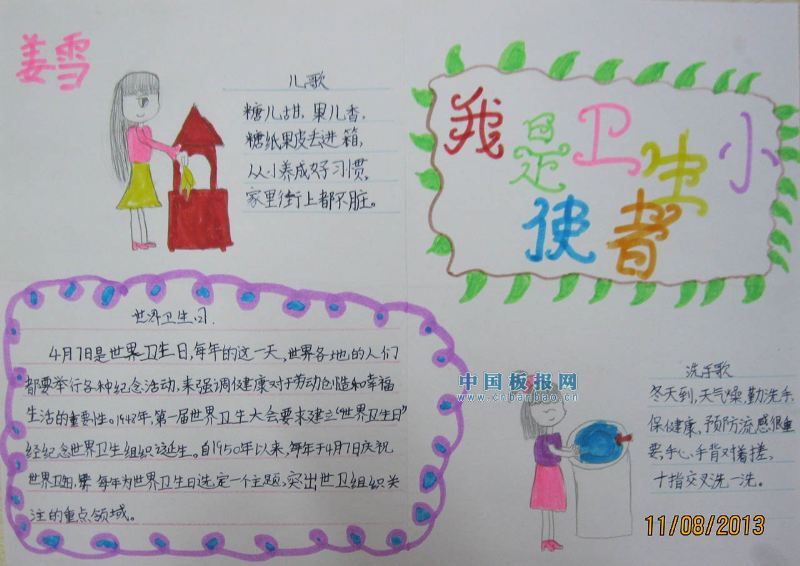 姜雪
儿歌
糖儿甜,果儿香,
糖纸果皮去进箱,
从小养成好习惯,
家里街上都不脏。
我是卫生小
使者
世界卫生日.
4月7日是世界卫生日,每年的这一天,世界各地的人们
都要举行各种纪念活动,来强调健康对于劳动创造和幸福
生活的重要性。1948年,第一届世界卫生大会要求建立“世界卫生日”
经纪念世界卫生组织诞生。自1950年以来,每年于4月7日庆祝
世界卫生日,每年为世界卫生日选定一个主题,突出世卫组织关
注的重点领域。
中国板报网
www.cnbanbao.cn
洗手歌
冬天到,天气燥,勤洗手,
保健康,预防流感很重
要,手心手背对着搓,
十指交叉洗一洗。
11/08/2013